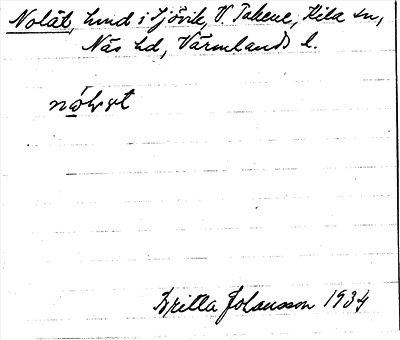 Nolåt, hund i Ljövik, V. Takene, Kila sn,
Näs hd, Värmlands l.
Britta Johansson 1934